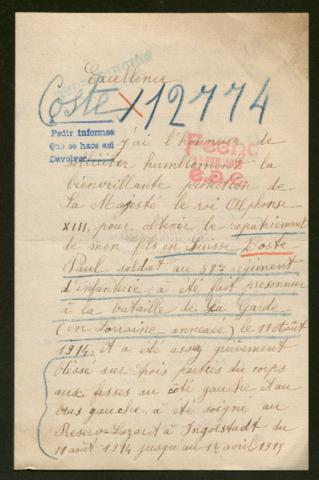 Excellence
Coste x 112774
Pedir informes
Que se hace asi
Devolver
j'ai l'honneur de
solliciter humblement la
bienveillante protection de
La Majesté le roi Alphonse
XIII, pour obtenir le rapatriement
de mon fils en Suisse Coste
Paul soldat au 58e régiment
d'infanterie, a été fait prisonnier
à la bataille de La Garde
(en Lorraine annexée) le 11 Août
1914. Il a été assez grièvement
blessé sur trois parties du corps
aux fesses au côté gauche et au
bras gauche. a été soigné au
Reserv-Lazaret à Ingolstadt du
11 août 1914 jusqu'au 12 avril 1915